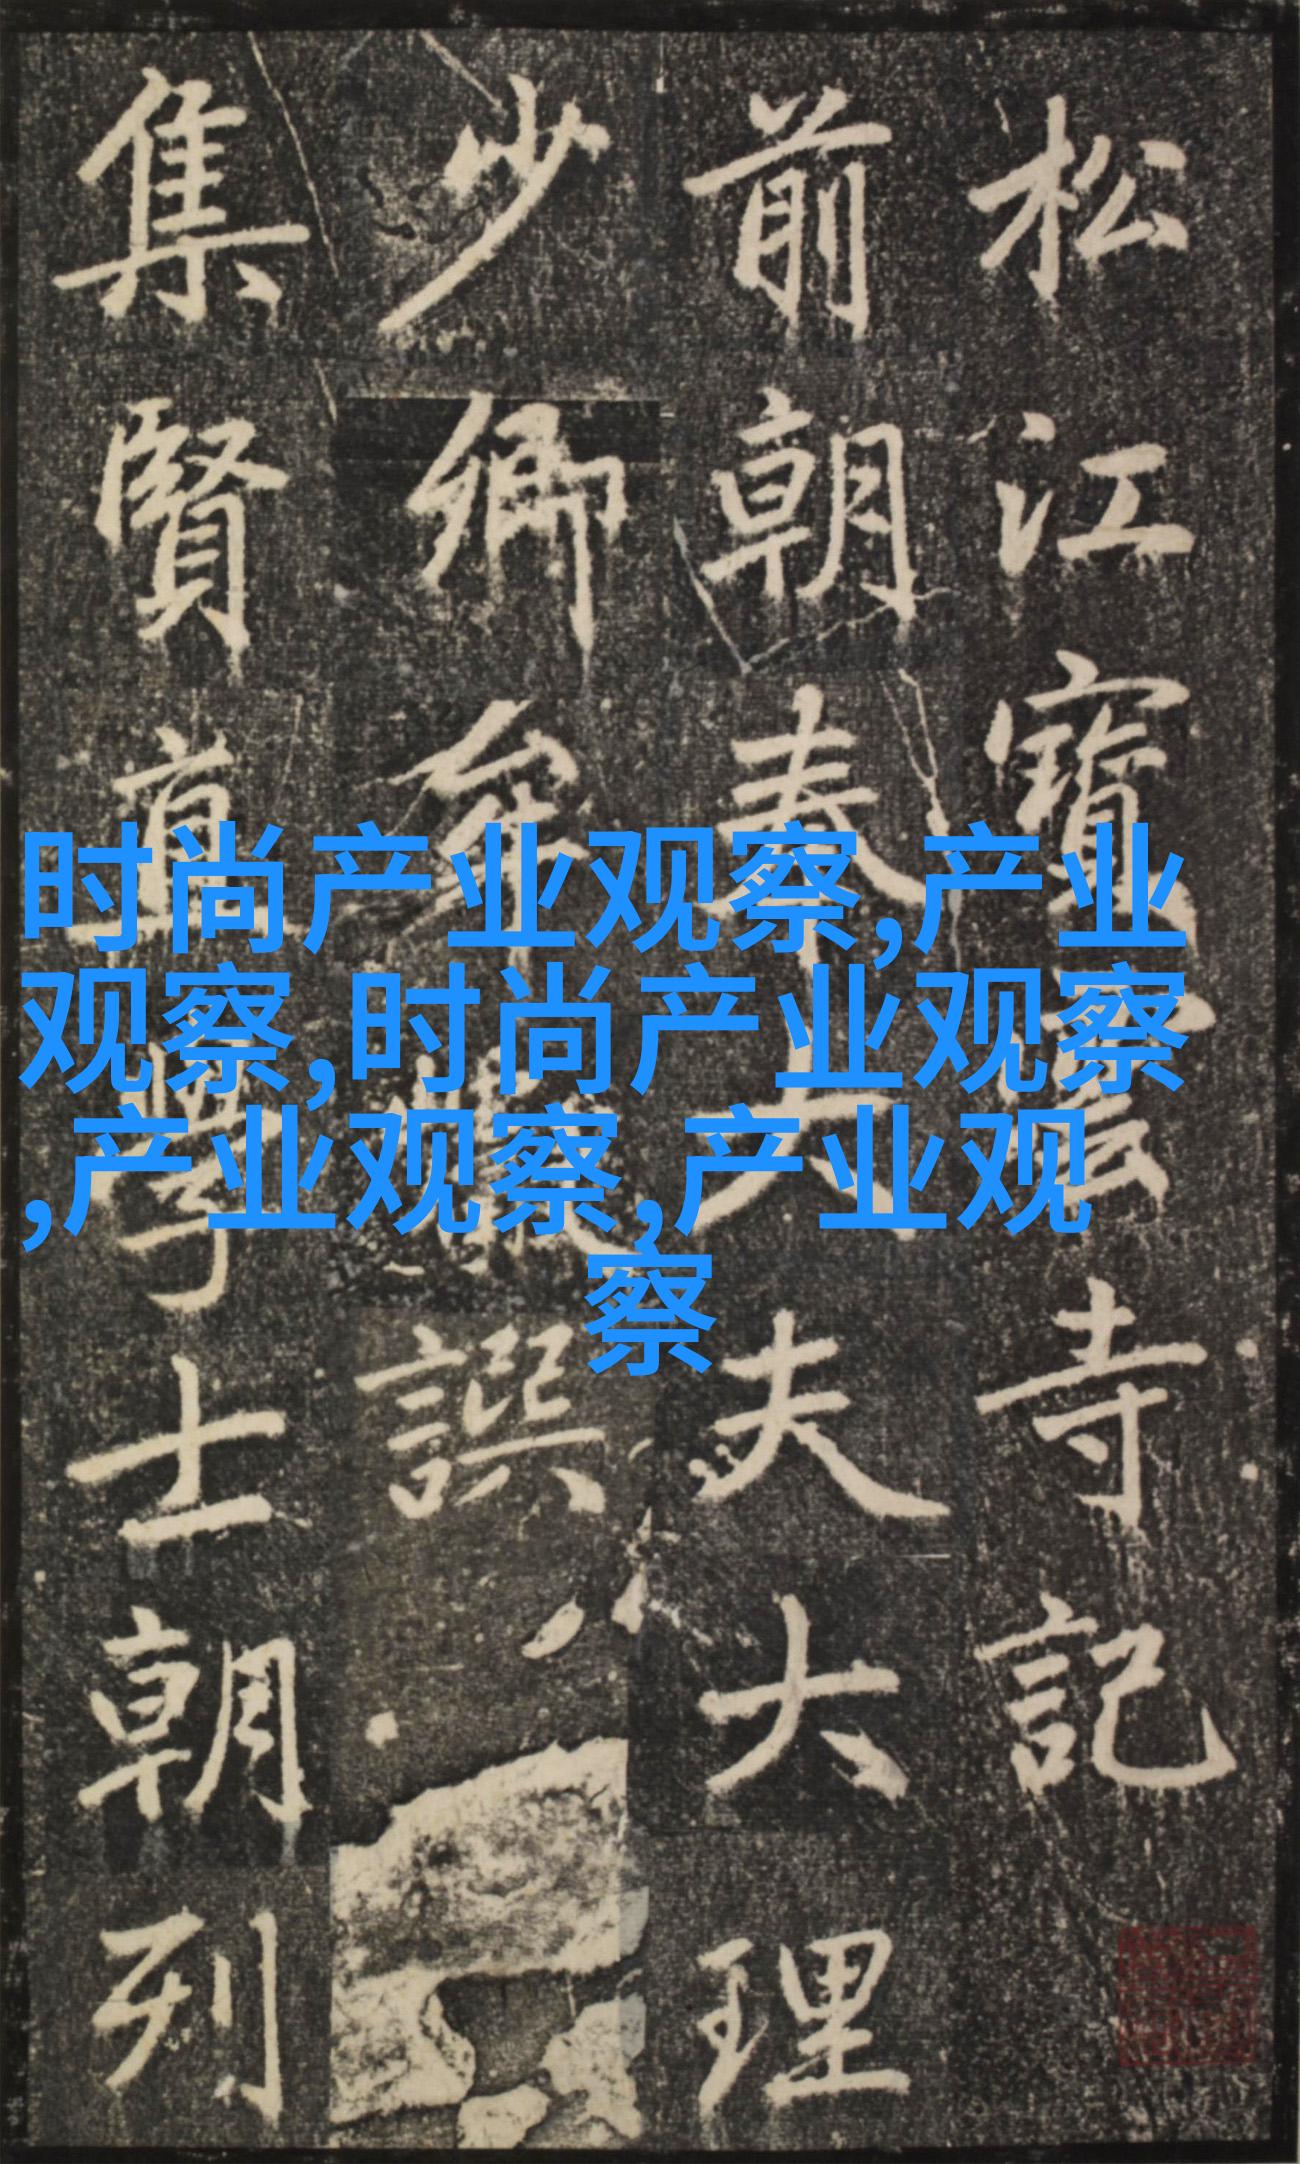 松江寶雲寺記
前朝奉大夫大理
少卿牟巘譔
集賢直學士朝列
时尚产业观察,产业
观察,时尚产业观察
,产业观察,产业观
察